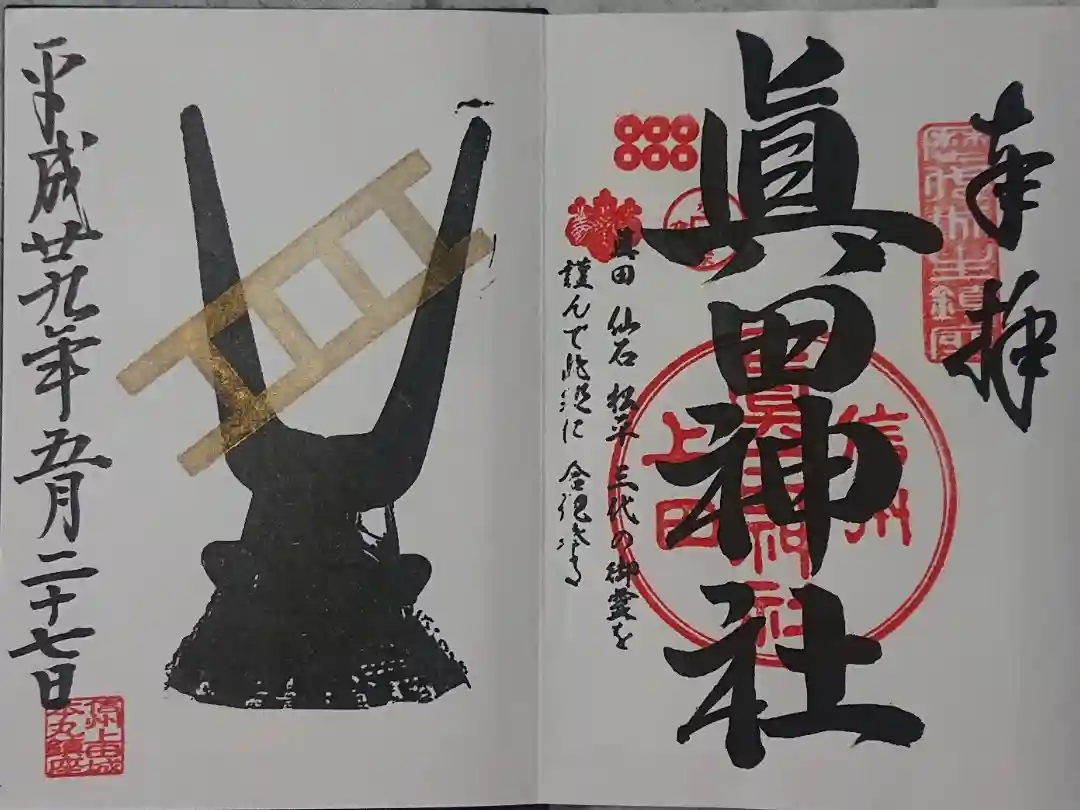 奉拝
歴代城主鎮座
眞田神社
信州
眞田神社
上田
眞田 仙石 松平 三代の御霊を
謹んで此処に 合祀奉る
平成廿九年五月二十七日
信州上田城
本丸鎮座